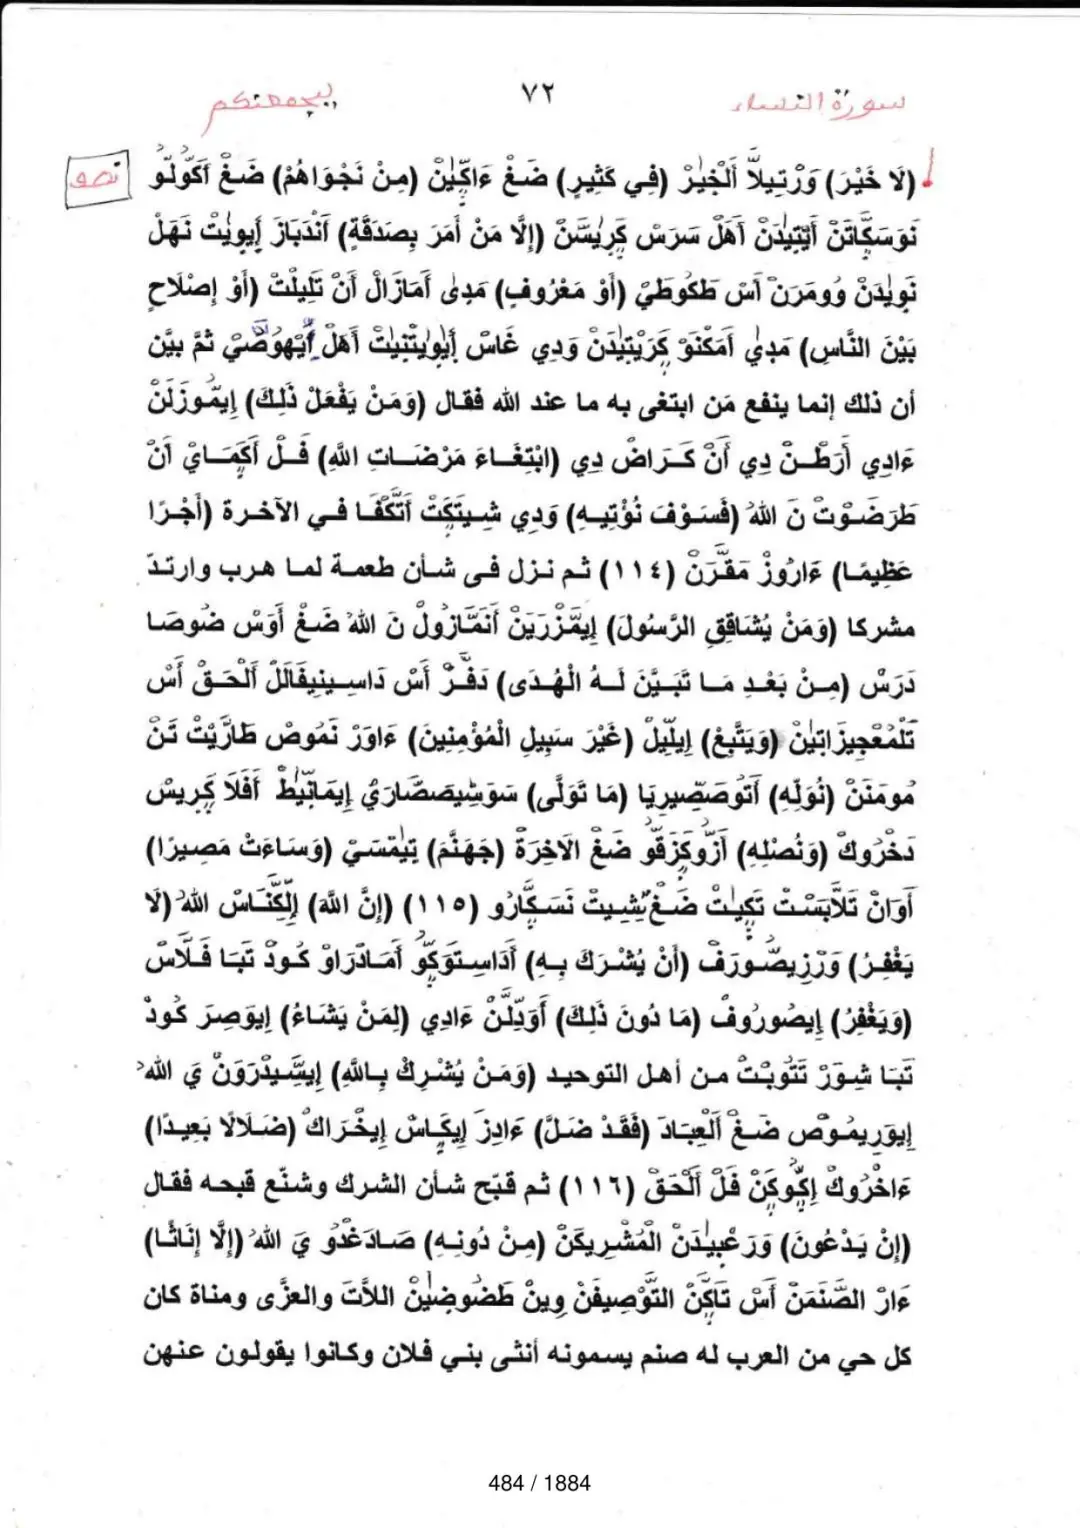 سورة النساء ٧٢ ليجمعنكم
(لَا خَيْرَ) وَرْتِيلَّا اَلْخِيْرْ (فِي كَثِيرٍ) ضَغْ ءَاكِّيْنْ (مِنْ نَجْوَاهُمْ) ضَغْ أَكُولُّو
نَوَسَكَّاتَنْ أَيْتِيدَنْ أَهَلْ سَرَسْ كَرِيسَنْ (إِلَّا مَنْ أَمَرَ بِصَدَقَةٍ) أَنْدَبَازَ إِيوِيْتْ نَهَلْ
نَوِيْدَنْ وُومَرَنْ أَسْ طَكُوطَيْ (أَوْ مَعْرُوفٍ) مَدِى أَمَازَالْ أَنْ تَلِيلْتْ (أَوْ إِصْلَاحٍ
بَيْنَ النَّاسِ) مَدِيْ أَمَكْنَوْ كَرَيْتِيدَنْ وَدِي غَاسْ إِيْوِيْتِنِيتْ أَهَلْ إِيْهُوضَيْ ثمَّ بيَّن
أن ذلك إنما ينفع مَن ابتغى به ما عند الله فقال (وَمَنْ يَفْعَلْ ذَلِكَ) إِيمُّوزَلَنْ
ءَادِي أَرَطَنْ دِي أَنْ كَرَاضْ دِي (ابْتِغَاءَ مَرْضَاتِ اللَّهِ) فَلْ أَكَمَايْ أَنْ
طَرَضَوْتْ نَ اللهُ (فَسَوْفَ نُؤْتِيهِ) وَدِي شِيتَكَتْ أَتَّكْفَا في الآخرة (أَجْرًا
عَظِيمًا) ءَارُوزْ مَقَّرَنْ (١١٤) ثم نزل فى شأن طعمة لما هرب وارتدّ
مشركا (وَمَنْ يُشَاقِقِ الرَّسُولَ) إِيمَّزْرَيَنْ أَنَمَّازُولْ نَ اللهُ ضَغْ أَوَسْ ضُوصَا
دَرَسْ (مِنْ بَعْدِ مَا تَبَيَّنَ لَهُ الْهُدَى) دَفَّرْ أَسْ دَاسِينِيفَالَلْ اَلْحَقْ أَسْ
تَلْمُعْجِيزَاتِينْ (وَيَتَّبِعْ) إِيلِيْلْ (غَيْرَ سَبِيلِ الْمُؤْمِنِينَ) ءَاوَرْ نَمُوصْ طَارَّيْتْ تَنْ
مُومَنَنْ (نُوَلِّهِ) أَتُوصَصِّيرِيَا (مَا تَوَلَّى) سَوَسِّيصَصَّارَيْ إِيمَانِّيْطْ أَفَلَا كَرِيسْ
دَخْرُوكْ (وَنُصْلِهِ) أَزُّوكَزَقُّو ضَغْ الَاخِرَةْ (جَهَنَّمَ) تِيْمْسَيْ (وَسَاءَتْ مَصِيرًا)
أَوَانْ تَلَّابَسْتْ تَكِيْتْ ضَغْ تِشِيتْ نَسَكَّارُو (١١٥) (إِنَّ اللَّهَ) إِلْكَنَّاسْ اللهُ (لَا
يَغْفِرُ) وَرْزِيصُّورَفْ (أَنْ يُشْرَكَ بِهِ) أَدَاسِتَوَكُّو أَمَادْرَاوْ كُودْ تَبَا فَلَّاسْ
(وَيَغْفِرُ) إِيصُورُوفْ (مَا دُونَ ذَلِكَ) أَوَدِلَّنْ ءَادِي (لِمَنْ يَشَاءُ) إِيوَصِرَ كُودْ
تَبَا شِوَرْ تَتُوبْتْ من أهل التوحيد (وَمَنْ يُشْرِكْ بِاللَّهِ) إِيسِّيدْرَوَنْ يَ اللهُ
إِيوَرِيمُوصْ ضَغْ اَلْعِبَادَ (فَقَدْ ضَلَّ) ءَادِزَ إِيكَّاسْ إِيخْرَاكْ (ضَلَالًا بَعِيدًا)
ءَاخْرُوكْ إِكُّوكَنْ فَلْ اَلْحَقْ (١١٦) ثم قبّح شأن الشرك وشنّع قبحه فقال
(إِنْ يَدْعُونَ) وَرَعْبِيدَنْ الْمُشْرِيكَنْ (مِنْ دُونِهِ) صَادَغْدُو يَ اللهُ (إِلَّا إِنَاثًا)
ءَارْ الصَّنَمَنْ أَسْ تَاكَّنْ التَّوْصِيفَنْ وِينْ طَضُوضِيْنْ اللاَّت والعزَّى ومناة كان
كل حي من العرب له صنم يسمونه أنثى بني فلان وكانوا يقولون عنهن
484 / 1884